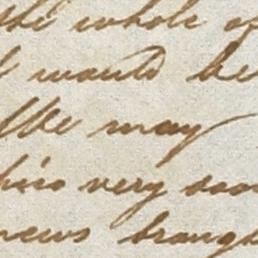 the whole of
would be
We may
very soon
news brough